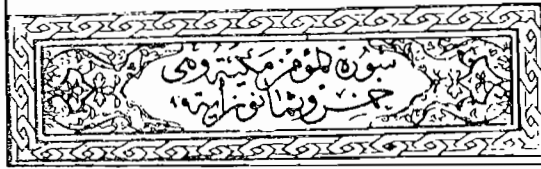 سورة المؤمن مكية وهي
خمس وثمانون اية